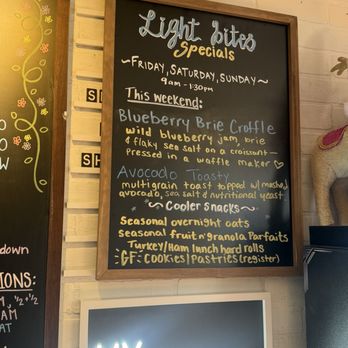 Light bites
Specials
~FRIDAY, SATURDAY, SUNDAY~
9am - 1:30pm
This weekend:
Blueberry Brie Croffle
wild blueberry jam, brie
& flaky sea salt on a croissant—
pressed in a waffle maker ♡
Avocado Toasty
multigrain toast topped w/ mashed
avocado, sea salt & nutritional yeast
~Cooler Snacks~
Seasonal overnight oats
seasonal fruit n' granola parfaits
Turkey/Ham lunch hard rolls
GF COOKIES/PASTRIES (register)
down
IONS: